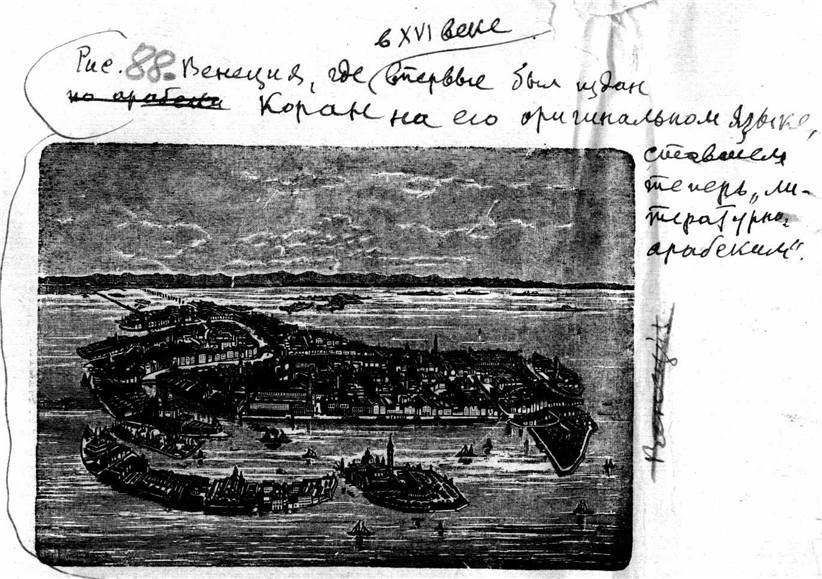 в XVI веке
Рис. 88. Венеция, где впервые был издан
по арабски Коран на его оригинальном языке,
ставшем
теперь „ли-
тературно-
арабским“.
Венеция